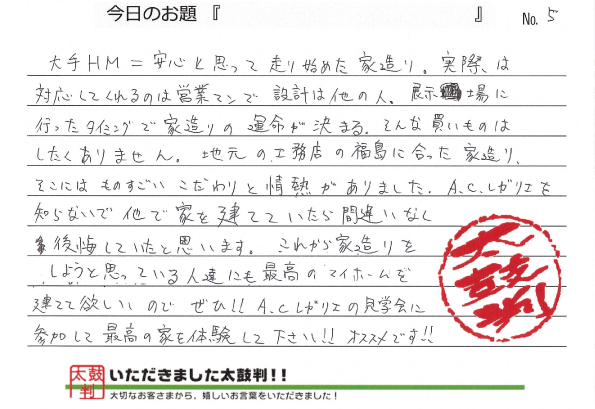 今日のお題『 』 No. 5
大手HM＝安心と思って走り始めた家造り。実際は
対応してくれるのは営業マンで設計は他の人。展示場に
行ったタイミングで家造りの運命が決まる。そんな買いものは
したくありません。地元の工務店の福島に合った家造り、
そこにはものすごいこだわりと情熱がありました。A.C.レガリエを
知らないで他で家を建てていたら間違いなく
後悔していたと思います。これから家造りを
しようと思っている人達にも最高のマイホームを
建てて欲しいのでぜひ!! A.C.レガリエの見学会に
参加して最高の家を体験して下さい!! オススメです!!
太鼓判
太鼓判 いただきました太鼓判!!
大切なお客さまから、嬉しいお言葉をいただきました！